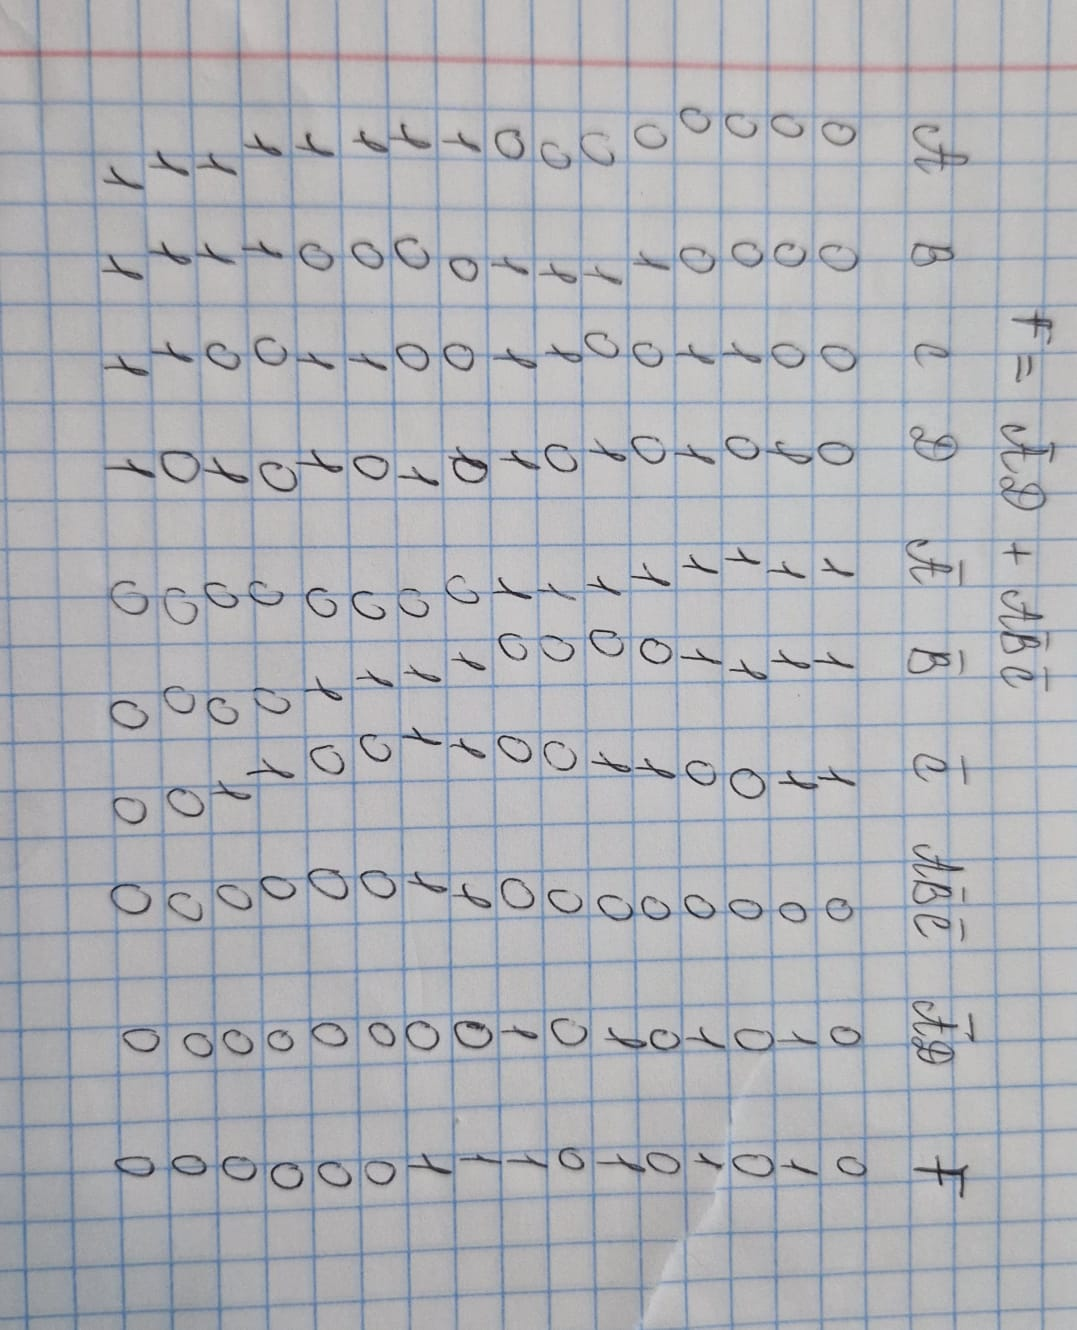 F = ĀD + AB̄C̄
A B C D Ā B̄ C̄ AB̄C̄ ĀD F
0 0 0 0 1 1 1 0 0 0
0 0 0 1 1 1 1 0 1 1
0 0 1 0 1 1 0 0 0 0
0 0 1 1 1 1 0 0 1 1
0 1 0 0 1 0 1 0 0 0
0 1 0 1 1 0 1 0 1 1
0 1 1 0 1 0 0 0 0 0
0 1 1 1 1 0 0 0 1 1
1 0 0 0 0 1 1 1 0 1
1 0 0 1 0 1 1 1 0 1
1 0 1 0 0 1 0 0 0 0
1 0 1 1 0 1 0 0 0 0
1 1 0 0 0 0 1 0 0 0
1 1 0 1 0 0 1 0 0 0
1 1 1 0 0 0 0 0 0 0
1 1 1 1 0 0 0 0 0 0